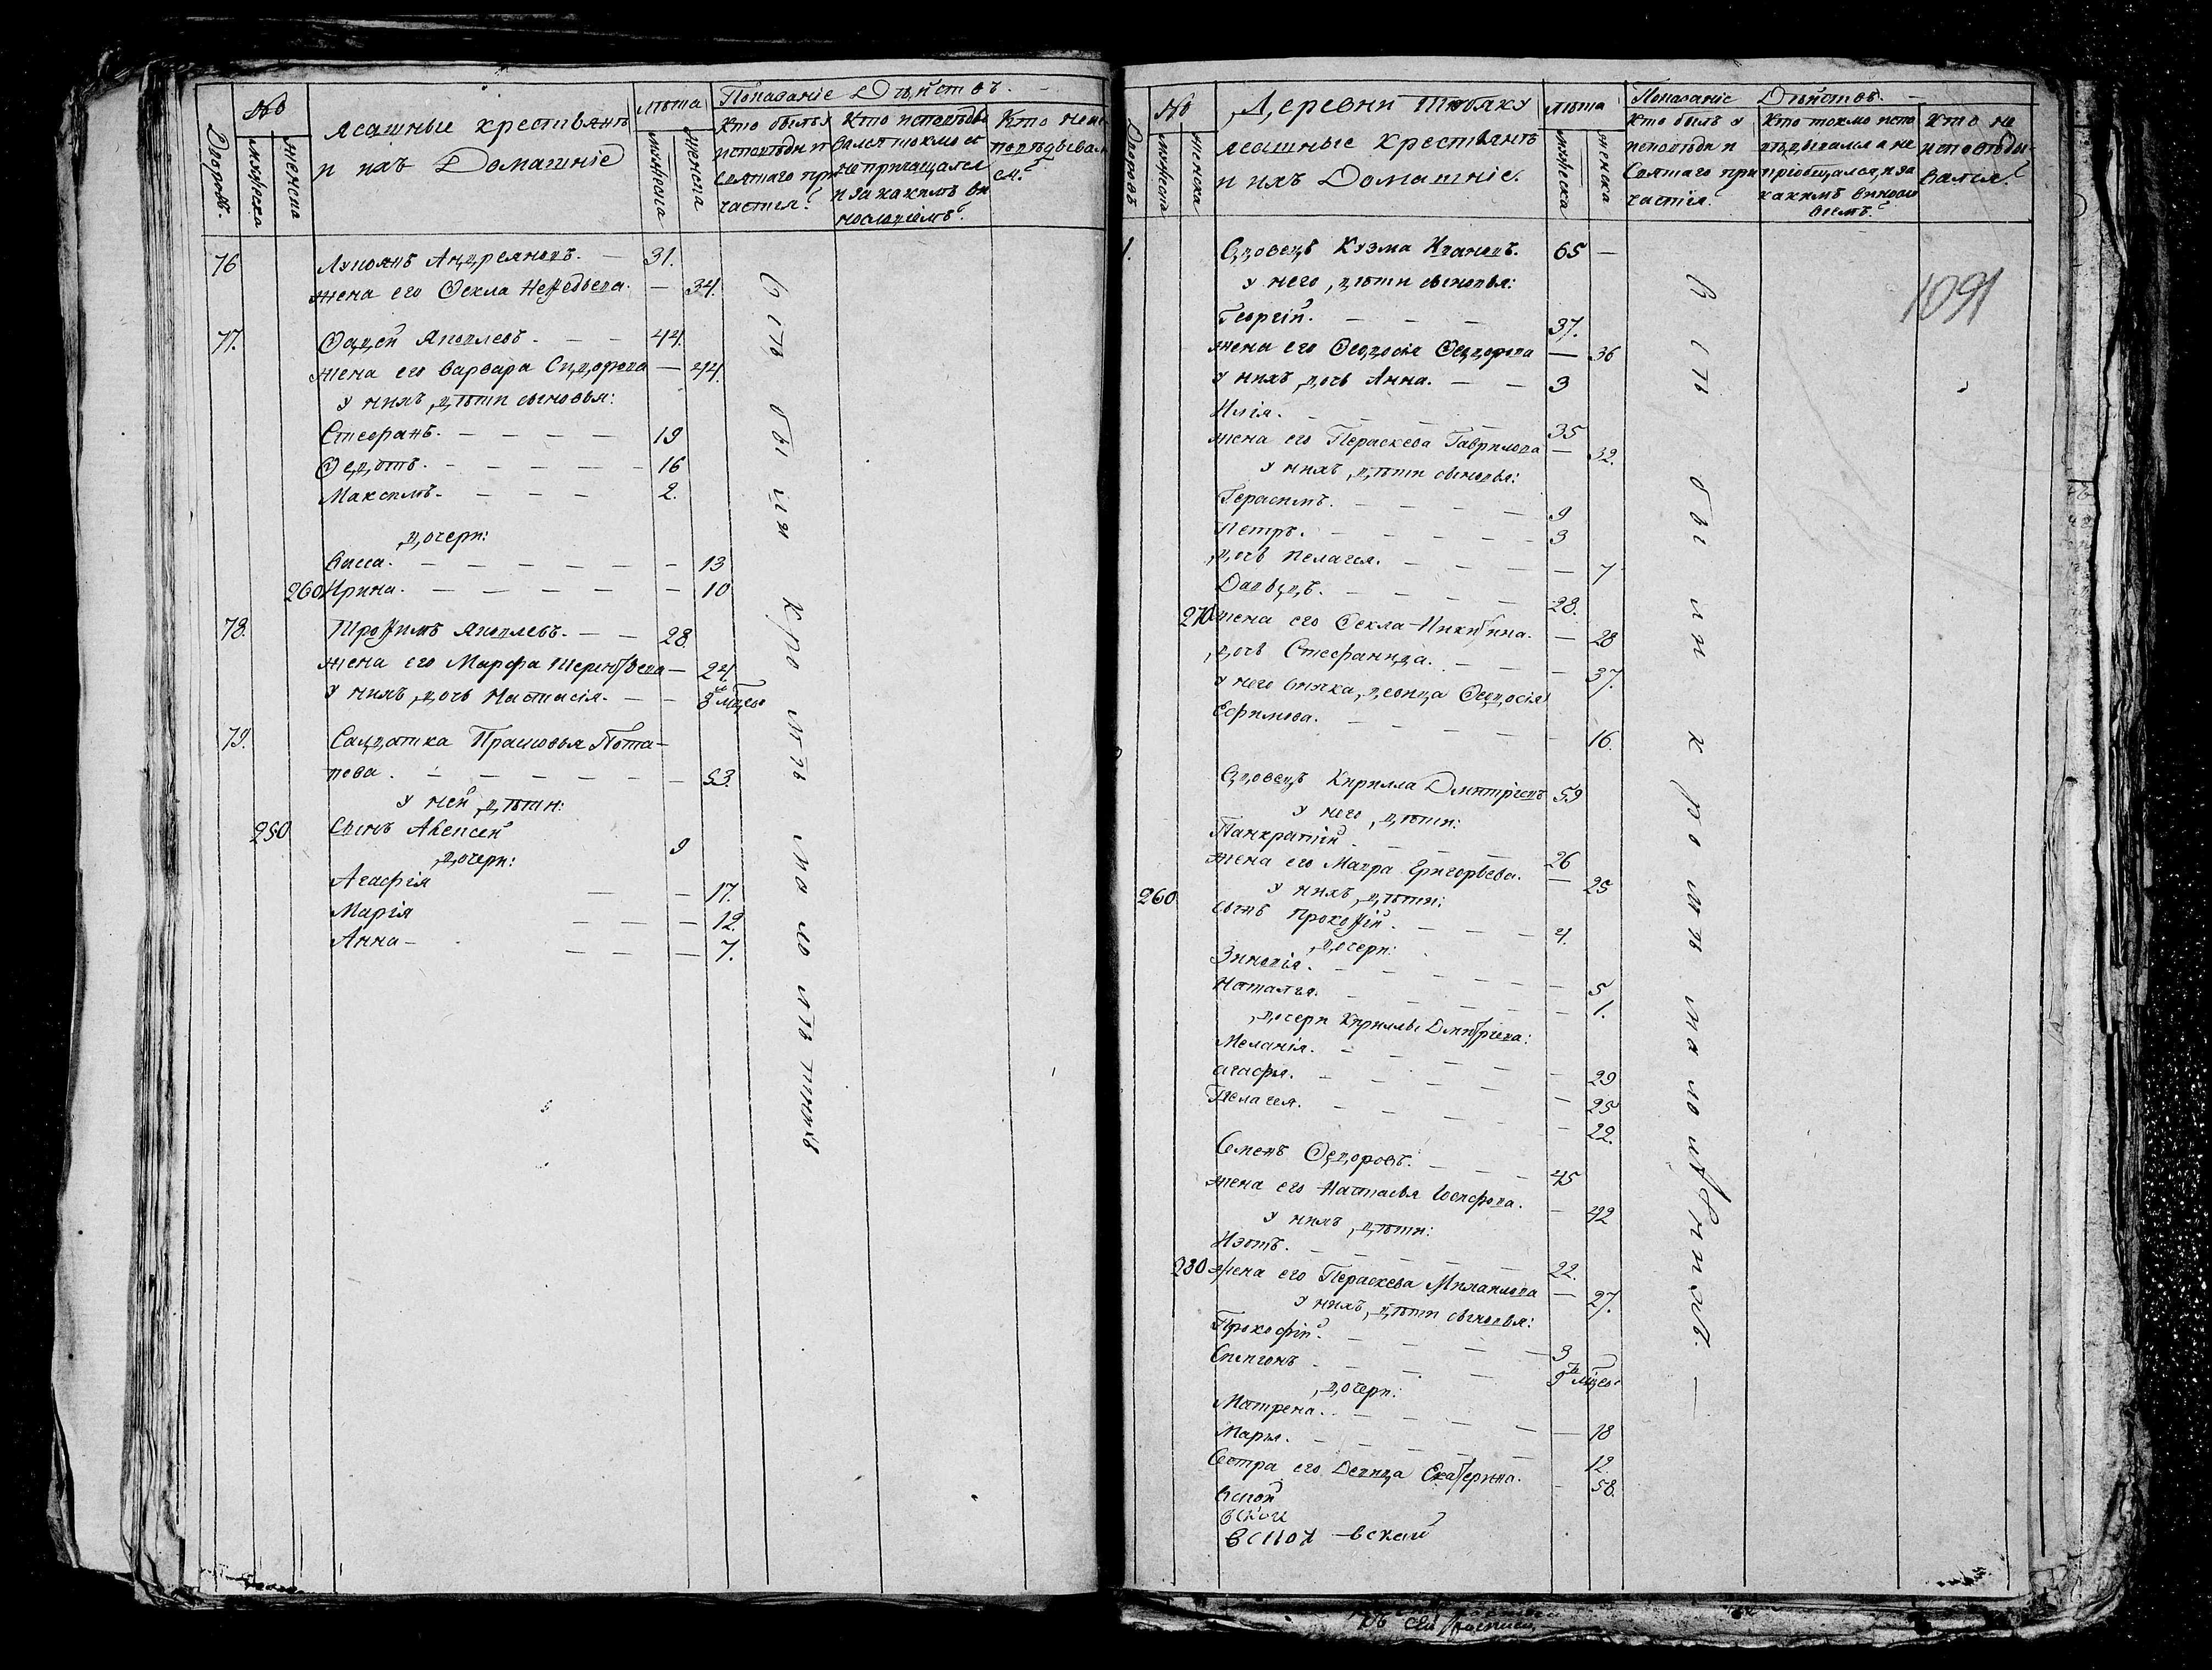 №
Дворовъ.
мужеска
женска
ясашные крестьянъ
и ихъ Домашніе
лѣта
мужеска
женска
Показаніе Дѣйствъ.
Кто былъ у
исповѣди и
Святаго при
частія.
Кто исповѣдо
вался токмо а
не причащался
и за какимъ ви
нословіемъ.
Кто неис
повѣдывал
ся.
76 Лукоянъ Андреяновъ. — 31.
жена его Ѳекла Нефедьева. — 34.
77. Ѳадѣй Яковлевъ. — — 44.
жена его Варвара Сидорова — 44.
у нихъ дѣти сыновья:
Стефанъ. — — — — 19
Ѳедотъ. — — — — — 16
Максимъ. — — — 2.
дочери:
Васса. — — — — — — 13
260 Ирина. — — — — — 10
78. Трофимъ Яковлевъ. — — 28.
жена его Марфа Терентьева — 24
у нихъ дочь Настасія. — — 8 мѣсе
79. Салдатка Прасковья Пота-
пова. — — — — — — 53.
у ней дѣти:
250 Сынъ Алексей 9
дочери:
Агафія — — 17.
Марія — — — 12.
Анна — — — — 7.
Всѣ были кромѣ малолѣтныхъ
№
Дворовъ
мужеска
женска
Деревни Тюбяку
ясашные Крестьянъ
и ихъ Домашніе.
лѣта
мужеска
женска
Показаніе Дѣйствъ. —
Кто былъ у
исповѣди и
Святаго при
частія.
Кто токмо испо
вѣдывался а не
пріобщался, и за
какимъ виносло
віемъ.
Кто не
исповѣды-
вался.
1091
1. Вдовецъ Кузма Ивановъ. 65 —
у него дѣти сыновья:
Георгій. — — — 37.
жена его Ѳеодосія Ѳедорова — 36
у нихъ дочь Анна. — — 3
Илія. — — — 35
жена его Параскева Гаврилова — 32.
у нихъ дѣти сыновья:
Герасимъ. — — — — 9
Петръ. — — — — — 3
дочь Пелагея. — — — — 7
Давыдъ. — — — — 28.
270 жена его Ѳекла Никитина. — 28
дочь Стефанида. — — — 37.
у него внучка девица Ѳеодосія
Ефимова. — — — — — 16.
Вдовецъ Кирилла Дмитріевъ 59
у него дѣти:
Панкратій. — — — 26
жена его Мавра Григорьева. — 25
у нихъ дѣти:
260 сынъ Прокофій. — — — 4.
дочери:
Зиновія. — — — — — 5
Наталья. — — — — — 1.
дочери Кирилы Дмитріева:
Меланія. — — — — — 29
Агафья. — — — — — 25
Пелагея. — — — — — 22.
Семенъ Ѳедоровъ. — — — 45
жена его Настасья Іосифова. — 42
у нихъ дѣти:
Изотъ. — — — — 22.
280 жена его Параскева Михаилова — 27.
у нихъ дѣти сыновья:
Прокофій. — — — — 3
Спиридонъ — — — 9 мѣсе
дочери:
Матрена. — — — — — 18
Марья. — — — — — 12.
Сестра его Девица Екатерина. — 58.
Всѣ были кромѣ малолѣтныхъ. —